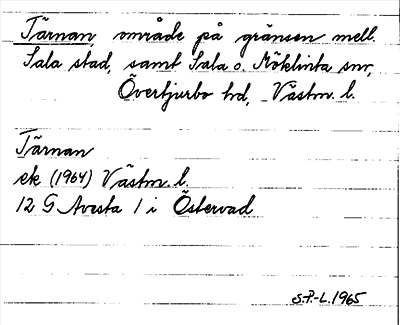 Tärnan område på gränsen mell.
Sala stad, samt Sala o. Möklinta snr,
Övertjurbo hd, Västm. l.
Tärnan
ek (1964) Västm. l.
12 G Avesta 1 i Östervad
S.P.-L. 1965